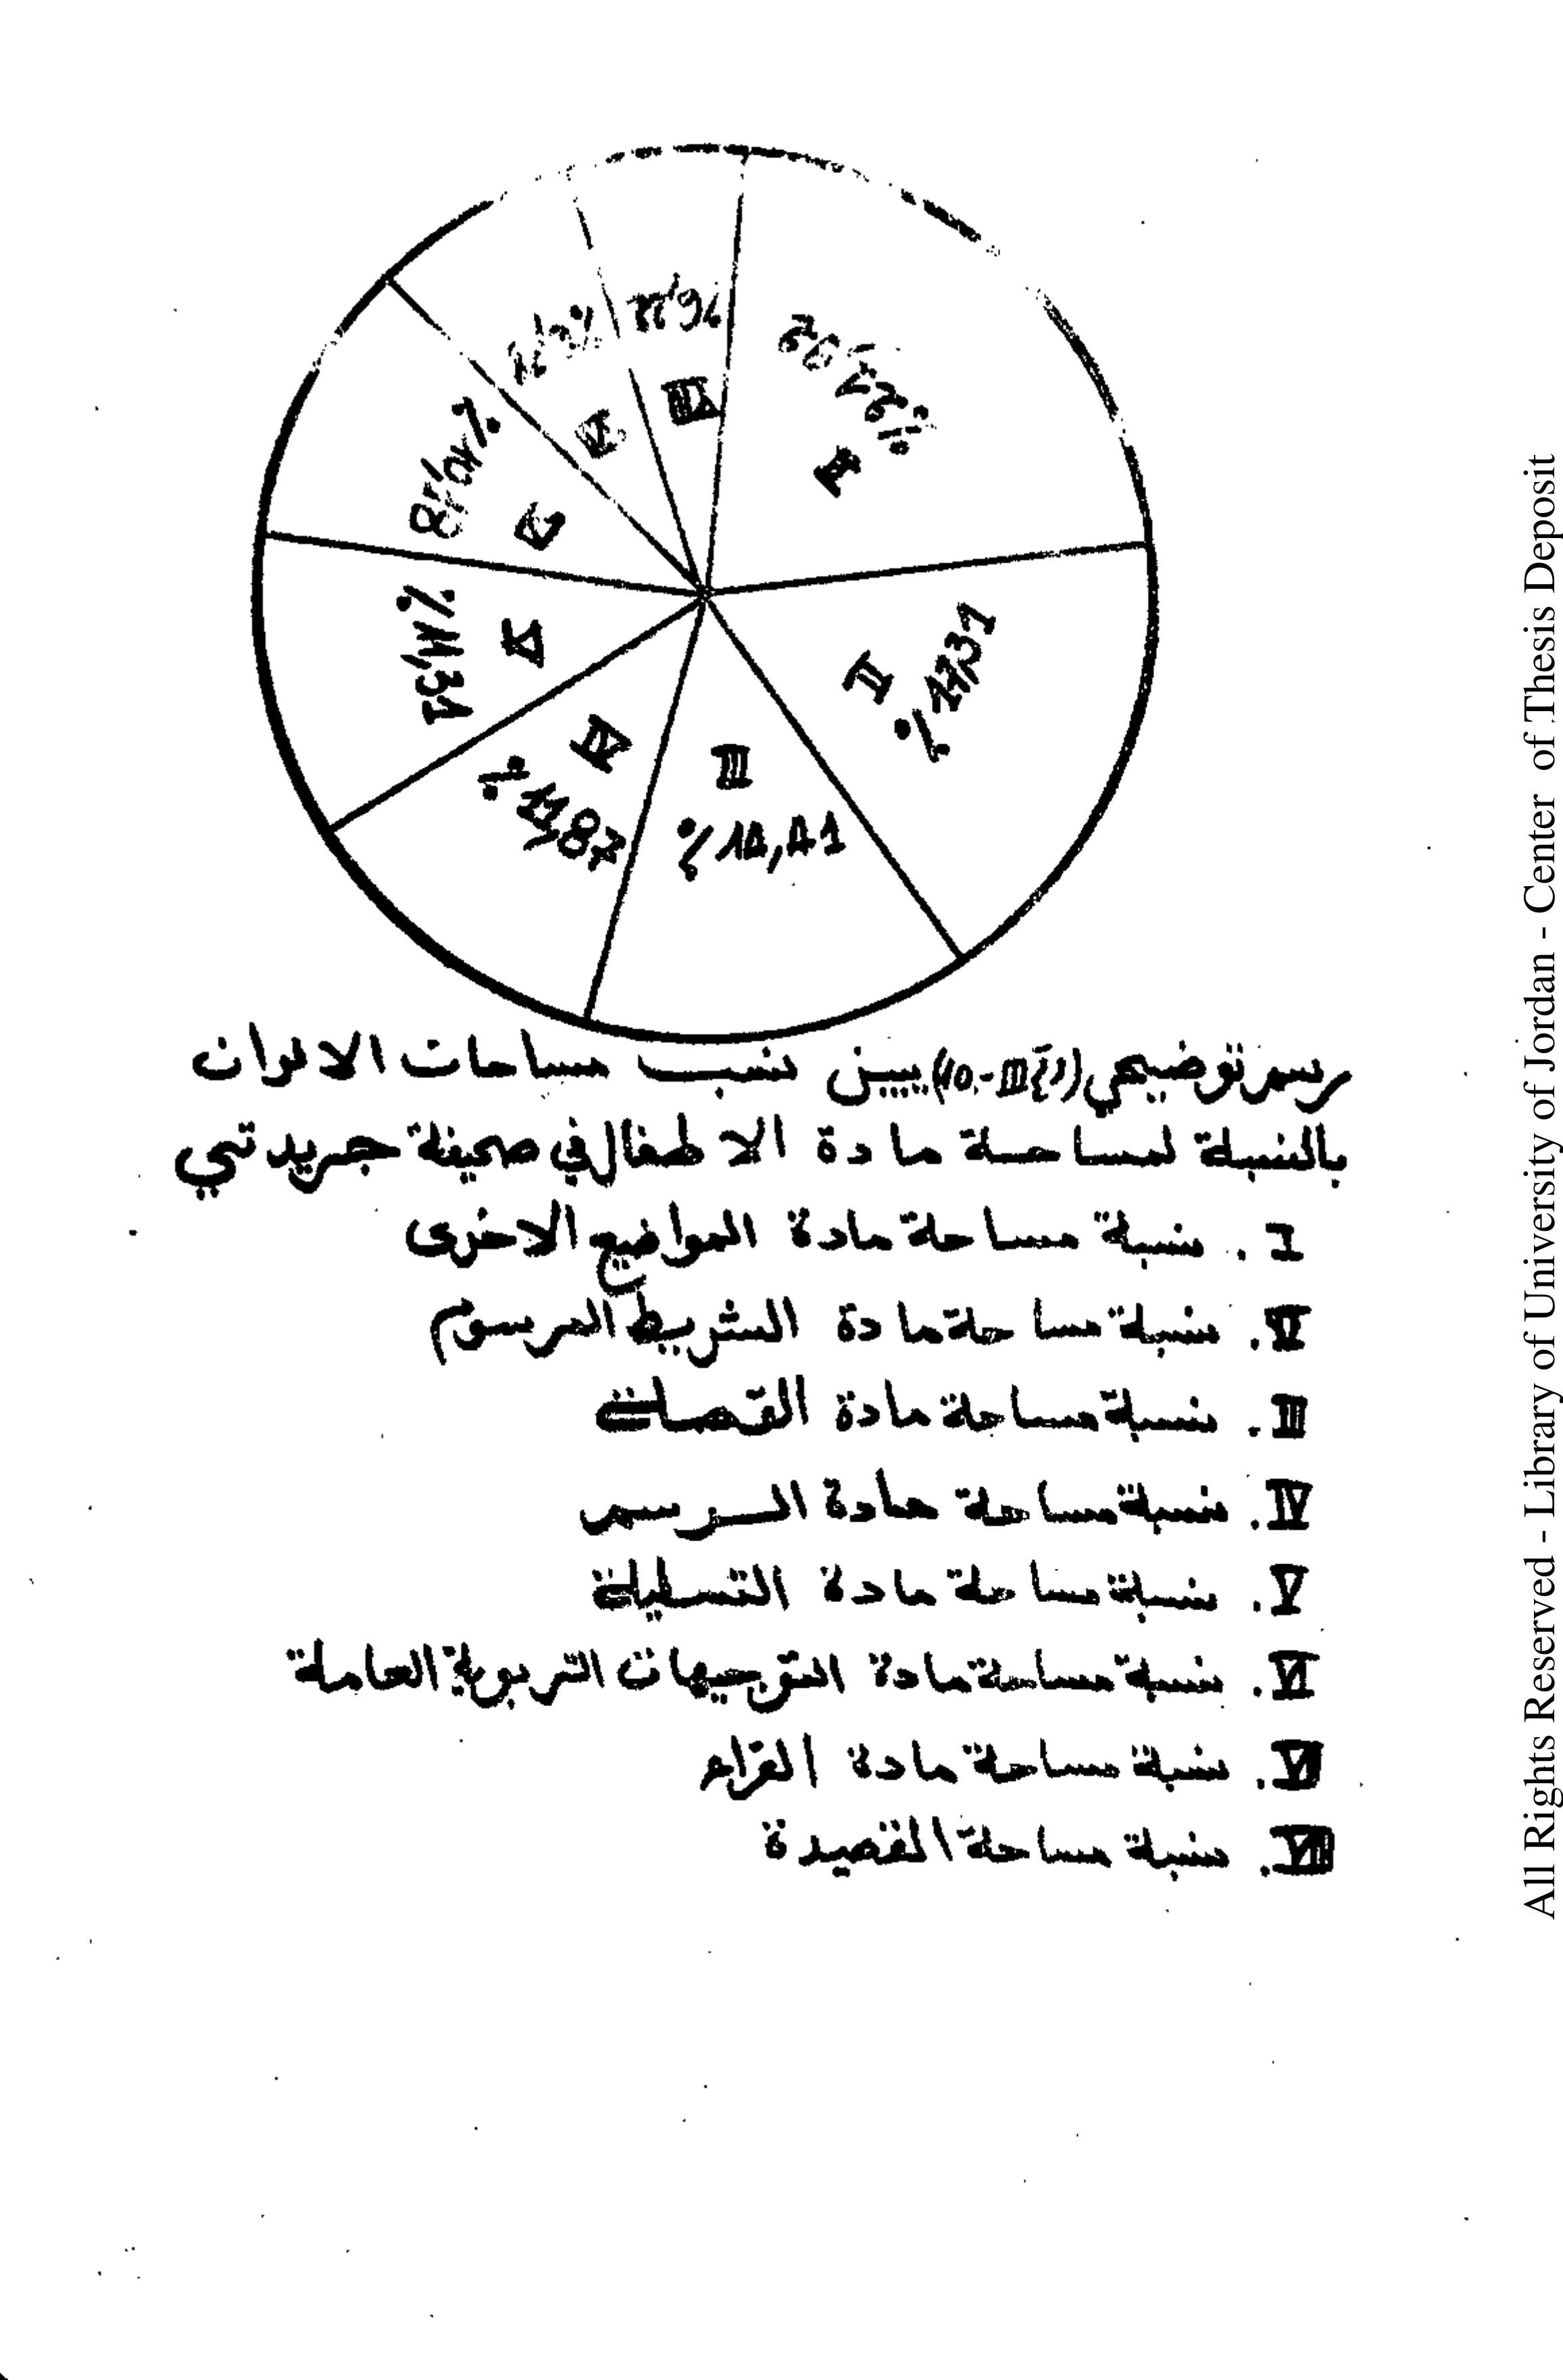 II
% 17,31
III
% 14,41
IV
V
رسم توضيحي (رقم III-10) يبين نسب مساحات الالوان
بالنسبة لمساحة مادة الاطفال في صحيفة جريدتي
I. نسبة مساحة مادة المواضيع الاخرى
II. نسبة مساحة مادة الشريط المرسوم
III. نسبة مساحة مادة القصة
IV. نسبة مساحة مادة الرسم
V. نسبة مساحة مادة التسلية
VI. نسبة مساحة مادة التوجيهات التربوية العاملة
VII. نسبة مساحة مادة القراء
VIII. نسبة مساحة القصيدة
All Rights Reserved - Library of University of Jordan - Center of Thesis Deposit